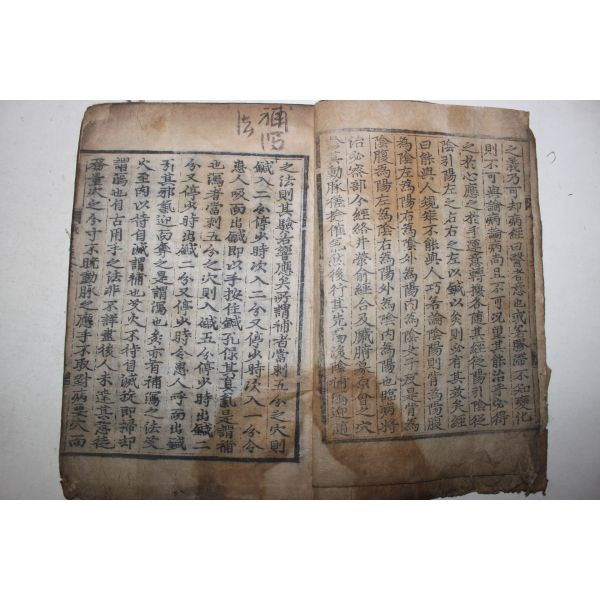 之義乃可却病經曰醫者意也或若膠滯不知變化
則不可與論病論病尚且不可况望其能治病必得
之於心應之於手運意轉換各隨其經從陽引陰從
陰引陽左之右右之左以鍼以灸則必有其效矣經
曰能與人規矩不能與人巧若論陰陽則背為陽腹
為陰左為陽右為陰外為陽內為陰女子反是背為
陰腹為陽左為陰右為陽外為陰內為陽也臨病將
治必察部分經絡井滎俞經合及臟腑募原會之穴
其動脉徐然後行其先後陰補瀉迎隨
補瀉法
之法則其驗若響應矣所謂補者當刺五分之穴則
鍼入二分停少時次入二分又停少時次入一分令
患人吸而出鍼即以手按住鍼孔保其真氣是謂補
也瀉者當刺五分之穴則入鍼五分停少時出鍼二
分又停少時出鍼二分又停少時令患人呼而出鍼
引其邪氣迎而奪之是謂瀉也灸亦有補瀉之法灸
火至肉以待自滅謂補也艾火不待自滅旋即掃却
謂瀉也有古用手之法非不詳盡後人未達其蘊徒
量穴之分寸不眺動脉之應手不取對病要穴而